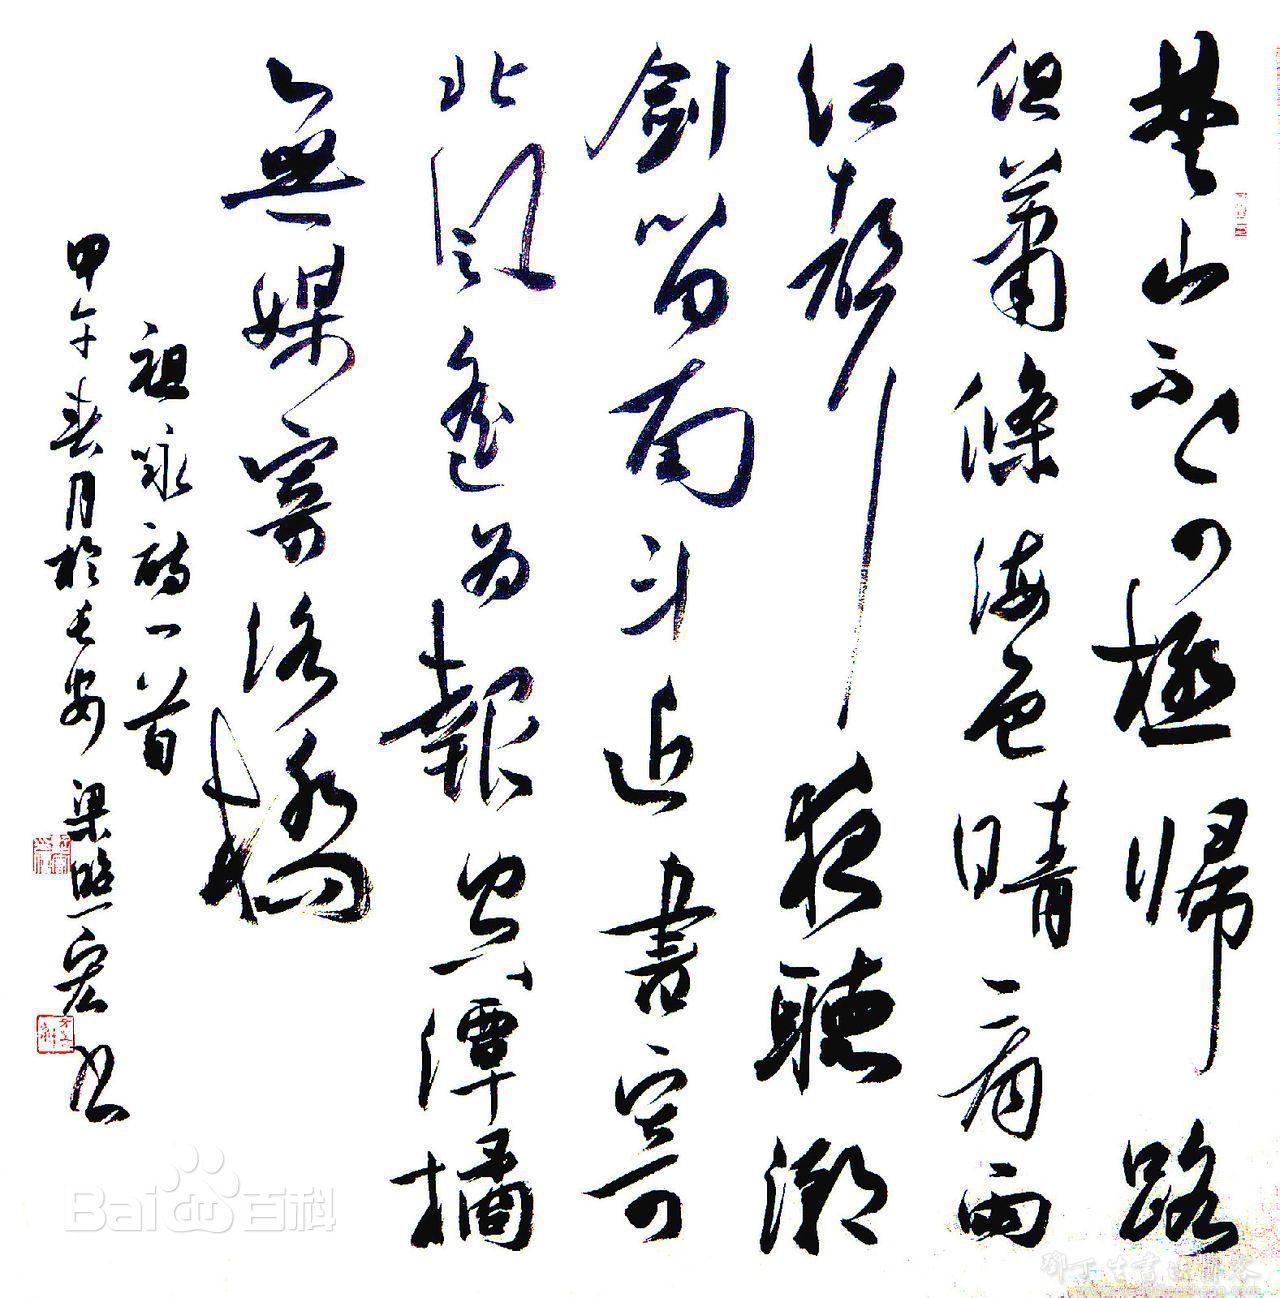 楚山不可極歸路
但蕭條海色晴看雨
江聲夜聽潮
劍留南斗近書寄
北風遙為報空潭橘
無媒寄洛橋
祖咏詩一首
甲午春月於長安梁照宏书
Bai百科